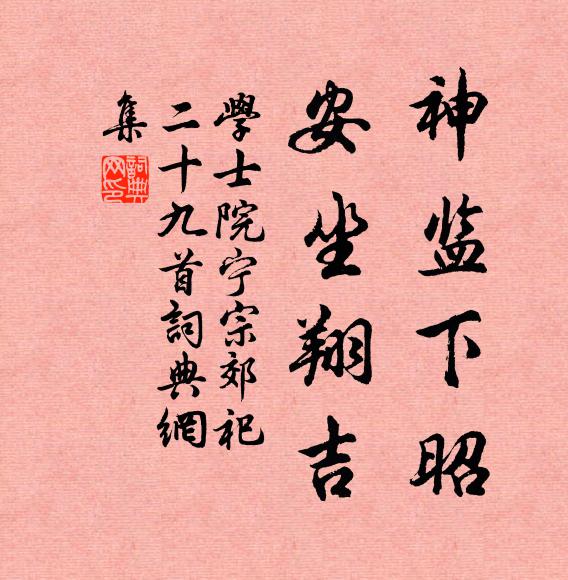 神监下昭
安坐翔吉
學士院宁宗郊祀
二十九首詞典網
集
詞典网印